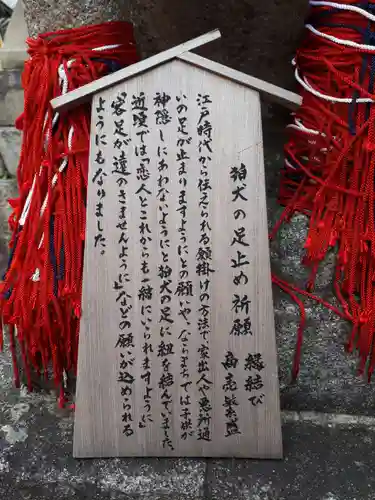 狛犬の足止め祈願
縁結び
商売繁盛
江戸時代から伝えられる願掛けの方法で、家出人や悪所通
いの足が止まりますようにとの願いや、ならまちでは子供が
神隠しにあわないようにと狛犬の足に紐を結んでいました。
近頃では「恋人とこれからも一緒にいられますように」
「客足が遠のきませんように」などの願いが込められる
ようにもなりました。